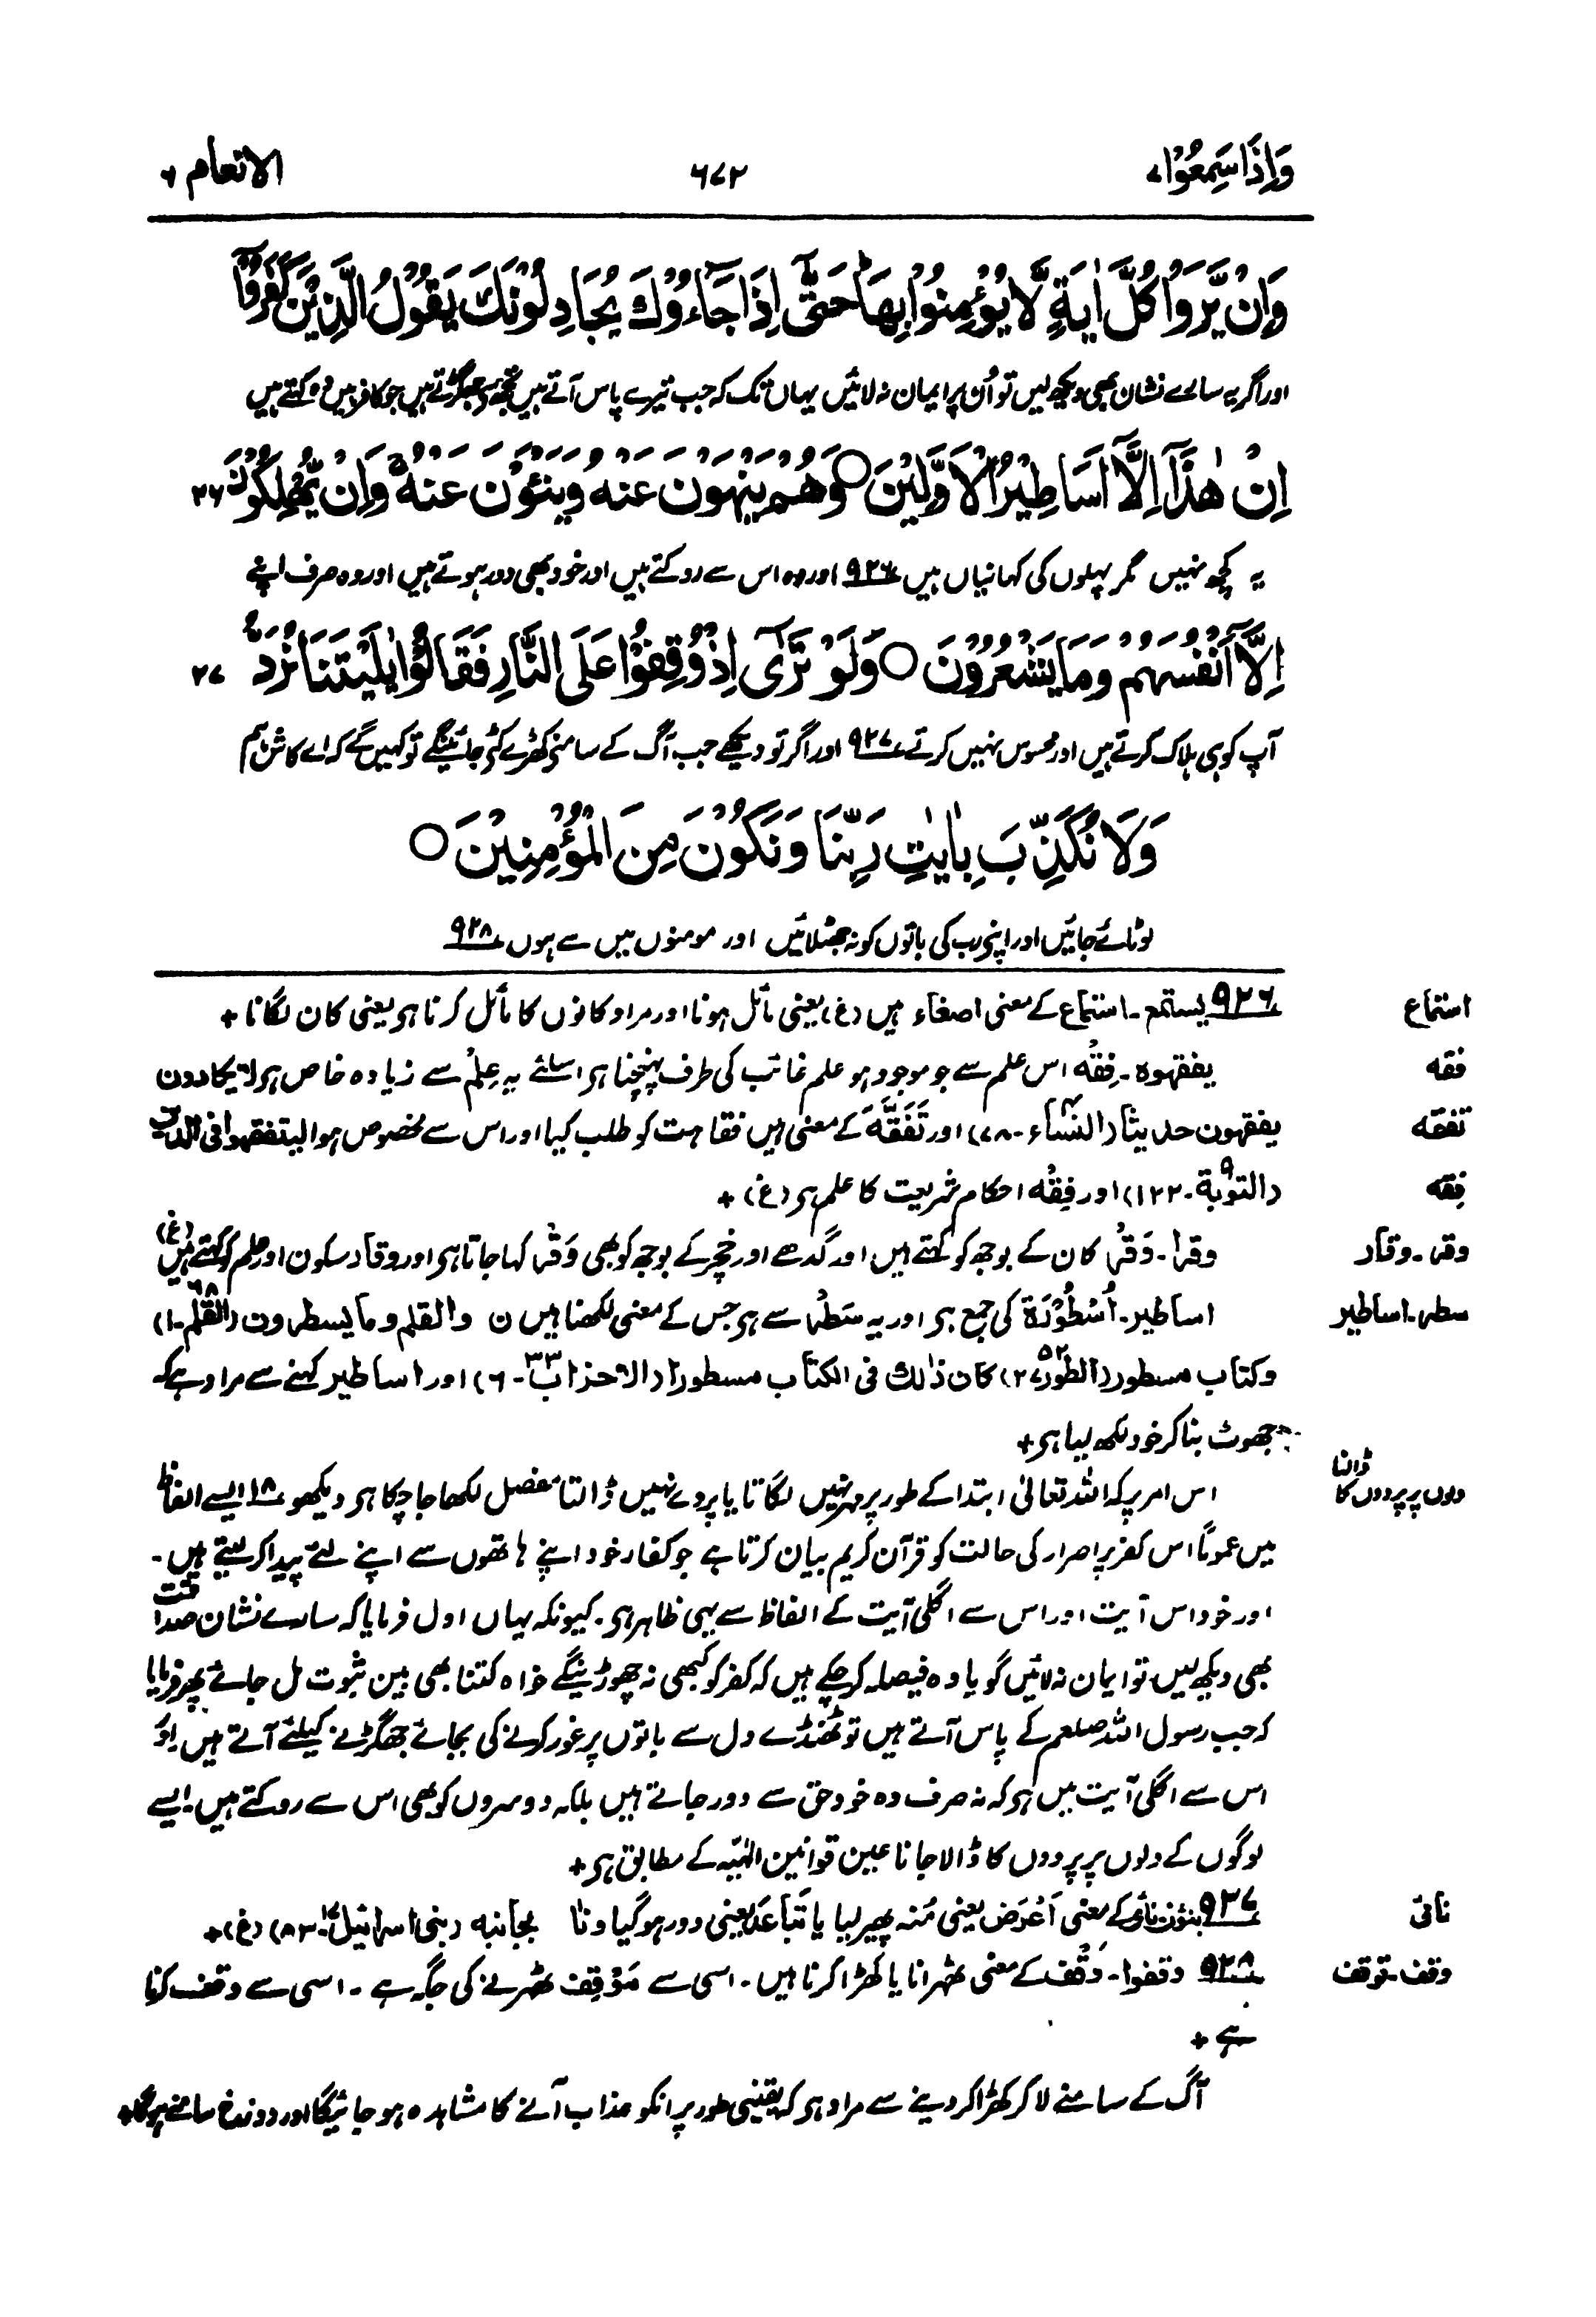 وَاِذَا سَمِعُوْا ٧
٦٧٢
الانعام ٦
وَاِنْ يَّرَوْا كُلَّ اٰيَةٍ لَّا يُؤْمِنُوْا بِهَا ؕ حَتّٰۤى اِذَا جَآءُوْكَ يُجَادِلُوْنَكَ يَقُوْلُ الَّذِيْنَ كَفَرُوْۤا
اور اگر یہ سارے نشان بھی دیکھ لیں تو اُن پر ایمان نہ لائیں یہاں تک کہ جب تیرے پاس آتے ہیں تجھ سے جھگڑتے ہیں جو کافر ہیں وہ کہتے ہیں
اِنْ هٰذَاۤ اِلَّاۤ اَسَاطِيْرُ الْاَوَّلِيْنَ ○ وَهُمْ يَنْهَوْنَ عَنْهُ وَيَنْـَٔوْنَ عَنْهُ ۚ وَاِنْ يُّهْلِكُوْنَ ٢٦
یہ کچھ نہیں مگر پہلوں کی کہانیاں ہیں ٩٢٦ اور وہ اس سے روکتے ہیں اور خود بھی دور ہوتے ہیں اور وہ صرف اپنے
اِلَّاۤ اَنْفُسَهُمْ وَمَا يَشْعُرُوْنَ ○ وَلَوْ تَرٰۤى اِذْ وُقِفُوْا عَلَى النَّارِ فَقَالُوْا يٰلَيْتَنَا نُرَدُّ ٢٧
آپ کو ہی ہلاک کرتے ہیں اور محسوس نہیں کرتے ٩٢٧ اور اگر تو دیکھے جب آگ کے سامنے کھڑے کئے جائینگے تو کہیں گے کہ اے کاش ہم
وَلَا نُكَذِّبَ بِاٰيٰتِ رَبِّنَا وَنَكُوْنَ مِنَ الْمُؤْمِنِيْنَ ○
لوٹائے جائیں اور اپنے رب کی باتوں کو نہ جھٹلائیں اور مومنوں میں سے ہوں ٩٢٨
استماع
٩٢٦ یستمع۔ استماع کے معنی اصغاء ہیں (غ) یعنی مائل ہونا اور مراد کانوں کا مائل کرنا ہے یعنی کان لگانا +
فقه
یفقهوه۔ فِقْه اس علم سے جو موجود ہو علم غائب کی طرف پہنچنا ہے اسلئے یہ عِلْم سے زیادہ خاص ہے لا یکادون
تفقه
یفقهون حدیثا (النساء ٤۔٧٨) اور تَفَقَّهَ کے معنی ہیں فقاہت کو طلب کیا اور اس سے مخصوص ہوا لیتفقهوا فی الدین
فِقه
(التوبة ٩۔١٢٢) اور فِقْه احکام شریعت کا علم ہے (غ) +
وقر۔ وقار
وقرا۔ وَقْر کان کے بوجھ کو کہتے ہیں اور گدھے اور خچر کے بوجھ کو بھی وِقْر کہا جاتا ہے اور وقار سکون اور حلم کو کہتے ہیں (غ)
سطر۔ اساطیر
اساطیر۔ اُسْطُوْرَة کی جمع ہے اور یہ سَطْر سے ہے جس کے معنی لکھنا ہیں ن والقلم وما یسطرون (القلم ٦٨۔١)
وکتاب مسطور (الطور ٥٢۔٢) کان ذٰلك فی الکتاب مسطورا (الاحزاب ٣٣۔٦) اور اساطیر کہنے سے مراد ہے کہ
جھوٹ بنا کر خود لکھ لیا ہے +
دلوں پر پردوں کا ڈالنا
اس امر پر کہ اللہ تعالیٰ ابتدا کے طور پر مہر نہیں لگاتا یا پردے نہیں ڈالتا مفصل لکھا جا چکا ہے دیکھو ١٨ ایسے الفاظ
میں عموماً اس کفر پر اصرار کی حالت کو قرآن کریم بیان کرتا ہے جو کفار خود اپنے ہاتھوں سے اپنے لئے پیدا کر لیتے ہیں۔
اور خود اس آیت اور اس سے اگلی آیت کے الفاظ سے یہی ظاہر ہے۔ کیونکہ یہاں اول فرمایا کہ سارے نشان صداقت
بھی دیکھ لیں تو ایمان نہ لائیں گویا وہ فیصلہ کر چکے ہیں کہ کفر کو کبھی نہ چھوڑینگے خواہ کتنا بھی بین ثبوت مل جائے پھر فرمایا
کہ جب رسول اللہ صلعم کے پاس آتے ہیں تو ٹھنڈے دل سے باتوں پر غور کرنے کی بجائے جھگڑنے کیلئے آتے ہیں اور
اس سے اگلی آیت میں ہے کہ نہ صرف وہ خود حق سے دور جاتے ہیں بلکہ دوسروں کو بھی اس سے روکتے ہیں۔ ایسے
لوگوں کے دلوں پر پردوں کا ڈالا جانا عین قوانین الٰہیہ کے مطابق ہے +
نائی
٩٢٧ ینؤن۔ نأی کے معنی اَعْرَضَ یعنی مُنہ پھیر لیا یا تَبَاعَدَ یعنی دور ہوگیا ونا بجانبه (بنی اسرائیل ١٧۔٨٣) (غ) +
وقف۔ توقف
٩٢٨ وقفوا۔ وَقْف کے معنی ٹھہرانا یا کھڑا کرنا ہیں۔ اسی سے مَوْقِف ٹھہرنے کی جگہ ہے۔ اسی سے وقف کرنا
ہے +
آگ کے سامنے لا کر کھڑا کر دینے سے مراد ہے کہ یقینی طور پر انکو عذاب آنے کا مشاہدہ ہو جائیگا اور دوزخ سامنے ہوگا +